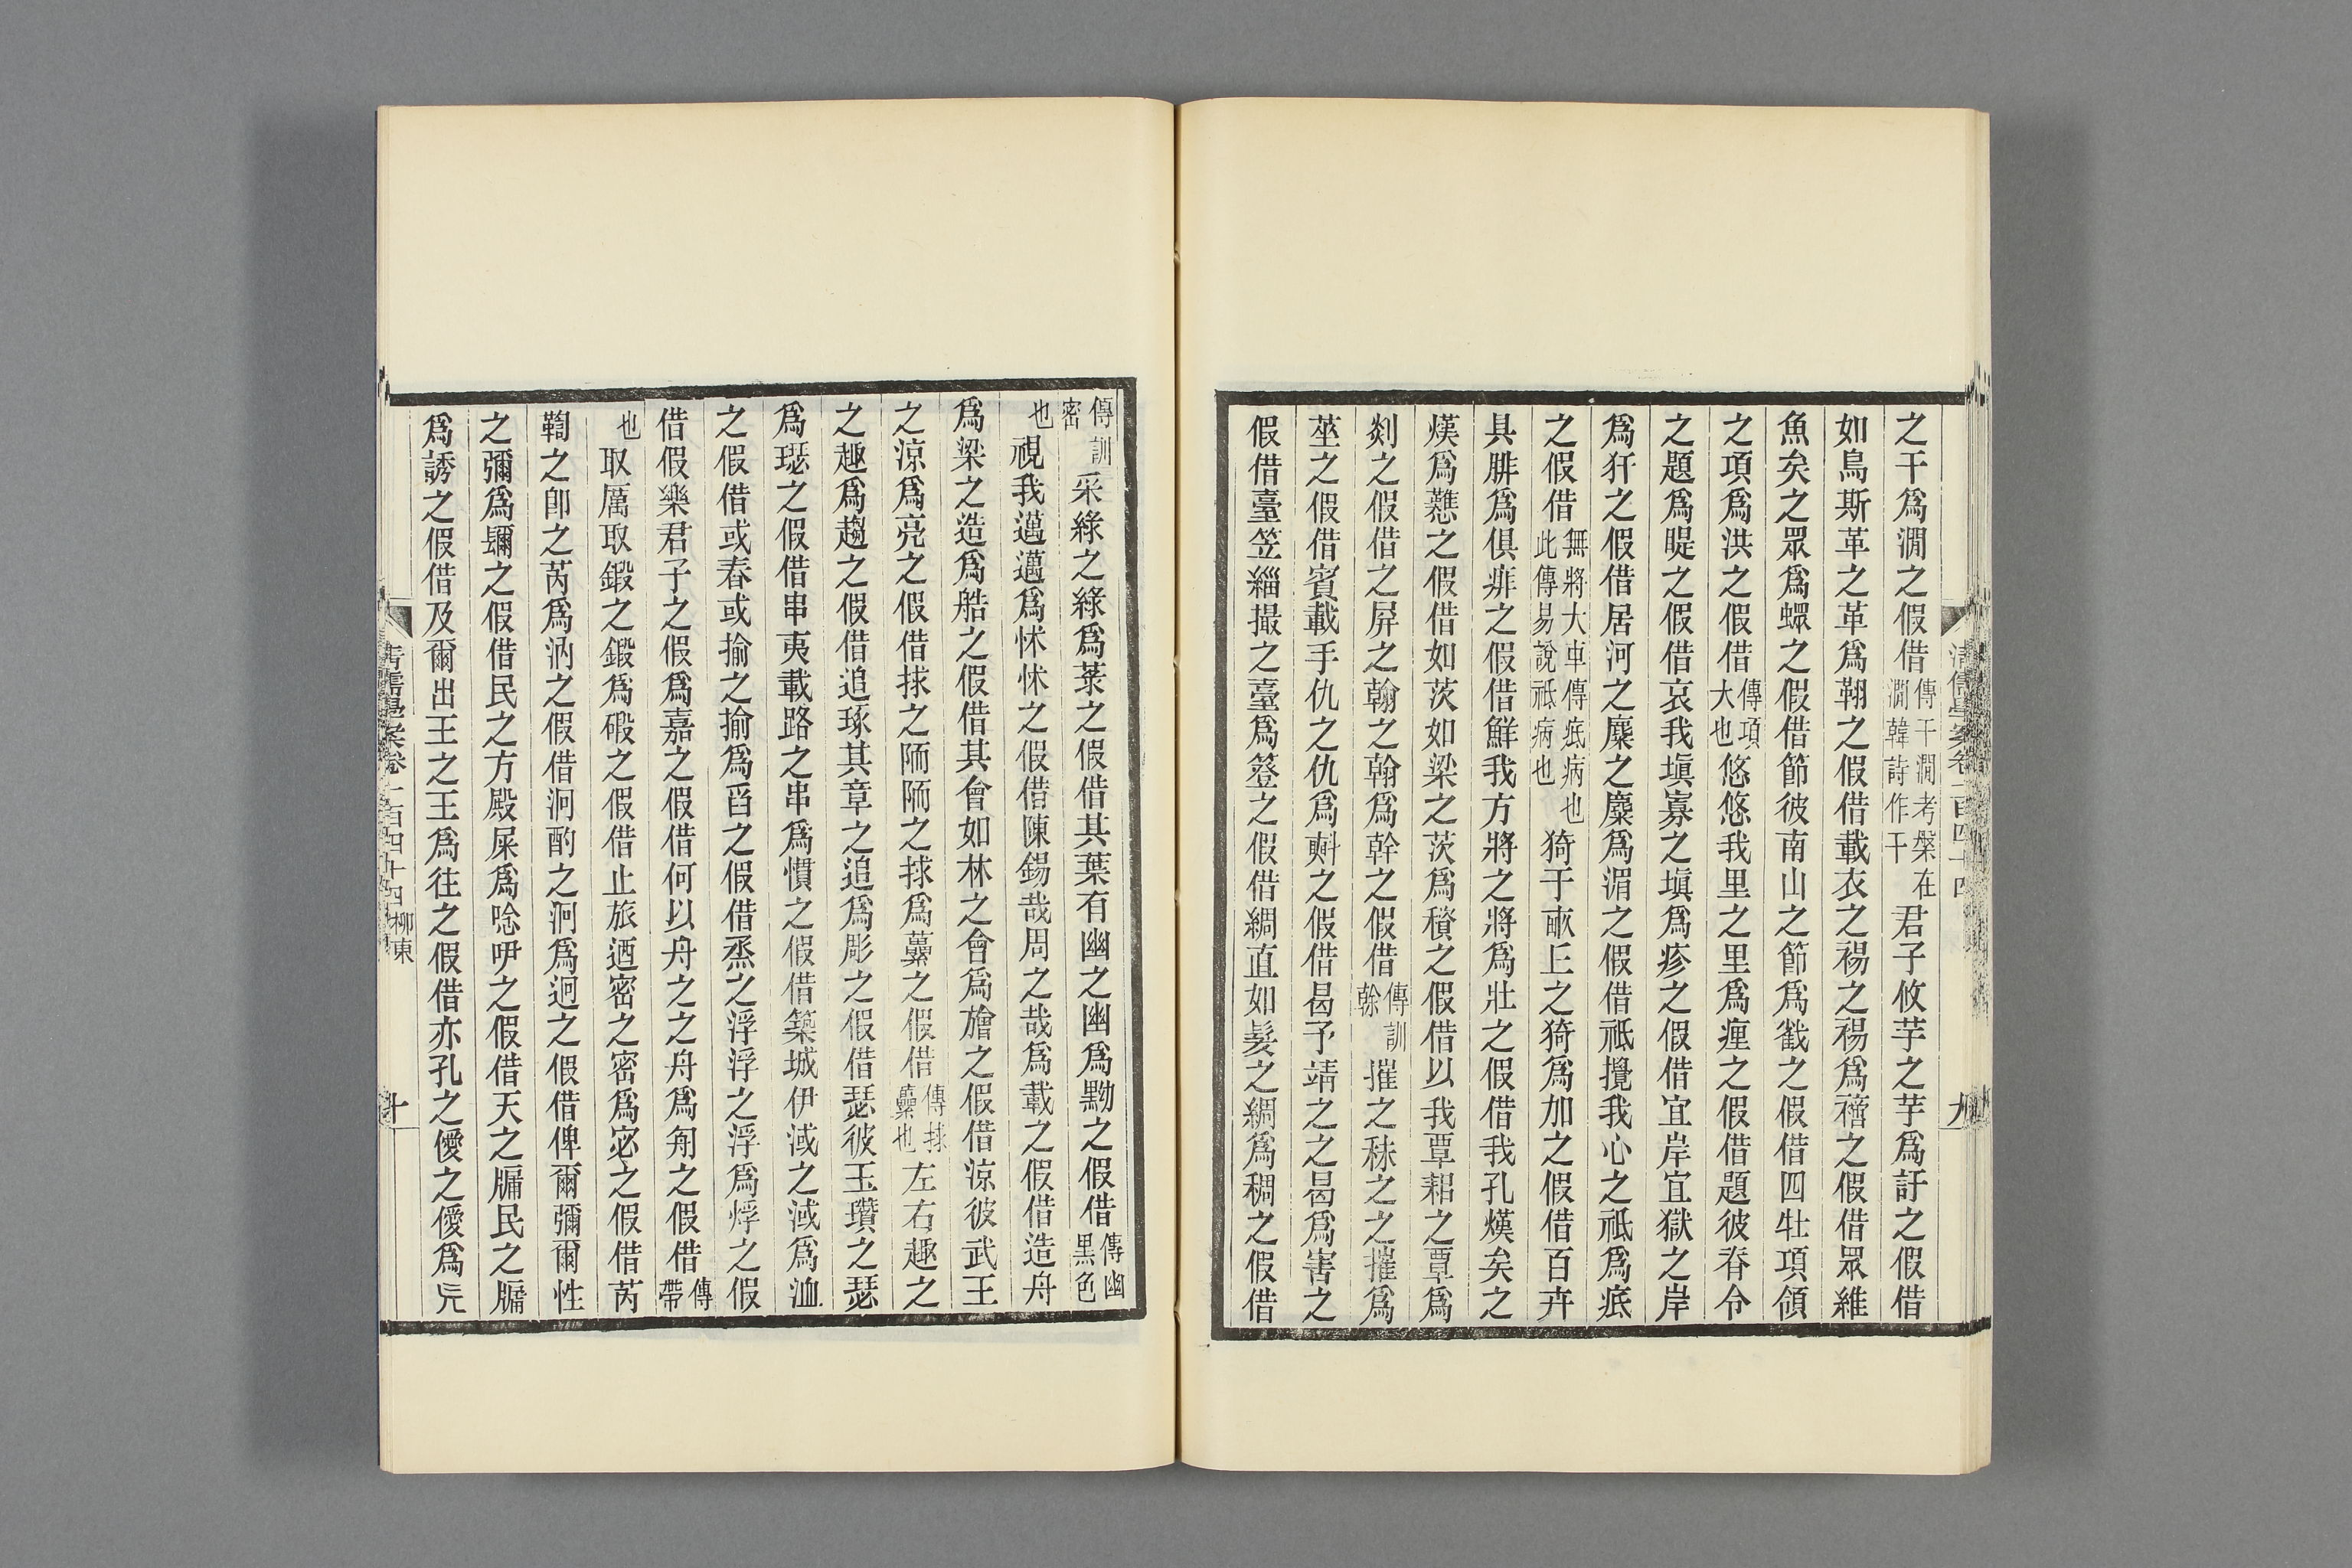 清儒學案卷一百四十四
九
之干爲澗之假借傳干澗考槃在澗韓詩作干君子攸芋之芋爲訏之假借
如鳥斯革之革爲翱之假借載衣之裼之裼爲禧之假借眾維
魚矣之眾爲螺之假借節彼南山之節爲巀之假借四牡項領
之項爲洪之假借傳項大也悠悠我里之里爲瘇之假借題彼脊令
之題爲睼之假借哀我塡寡之塡爲疹之假借宜岸宜獄之岸
爲犴之假借居河之麋之麋爲湄之假借祗攪我心之祗爲疷
之假借無將大車傳疷病也此傳易說祗病也猗于畝丘之猗爲加之假借百卉
具腓爲俱痱之假借鮮我方將之將爲壯之假借我孔熯矣之
熯爲戁之假借如茨如梁之茨爲積之假借以我覃耜之覃爲
剡之假借之屏之翰之翰爲幹之假借傳訓榦摧之秣之之摧爲
莝之假借賓載手仇之仇爲㪺之假借曷予靖之之曷爲害之
假借臺笠緇撮之臺爲簦之假借綢直如髮之綢爲稠之假借
傳訓密也采綠之綠爲菉之假借其葉有幽之幽爲黝之假借傳幽黑色
視我邁邁爲怵怵之假借陳錫哉周之哉爲載之假借造舟
爲梁之造爲艁之假借其會如林之會爲旝之假借涼彼武王
之涼爲亮之假借捄之陑陑之捄爲虆之假借傳捄虆也左右趣之
之趣爲趨之假借追琢其章之追爲彫之假借瑟彼玉瓚之瑟
爲璱之假借串夷載路之串爲慣之假借築城伊淢之淢爲洫
之假借或舂或揄之揄爲舀之假借烝之浮浮之浮爲烰之假
借假樂君子之假爲嘉之假借何以舟之之舟爲匊之假借傳帶
也取厲取鍛之鍛爲碫之假借止旅迺密之密爲宓之假借芮
鞫之卽之芮爲汭之假借泂酌之泂爲迥之假借俾爾彌爾性
之彌爲镾之假借民之方殿屎爲唸吚之假借天之牖民之牖
爲誘之假借及爾出王之王爲往之假借亦孔之僾之僾爲旡
清儒學案卷一百四十四 柳東
十